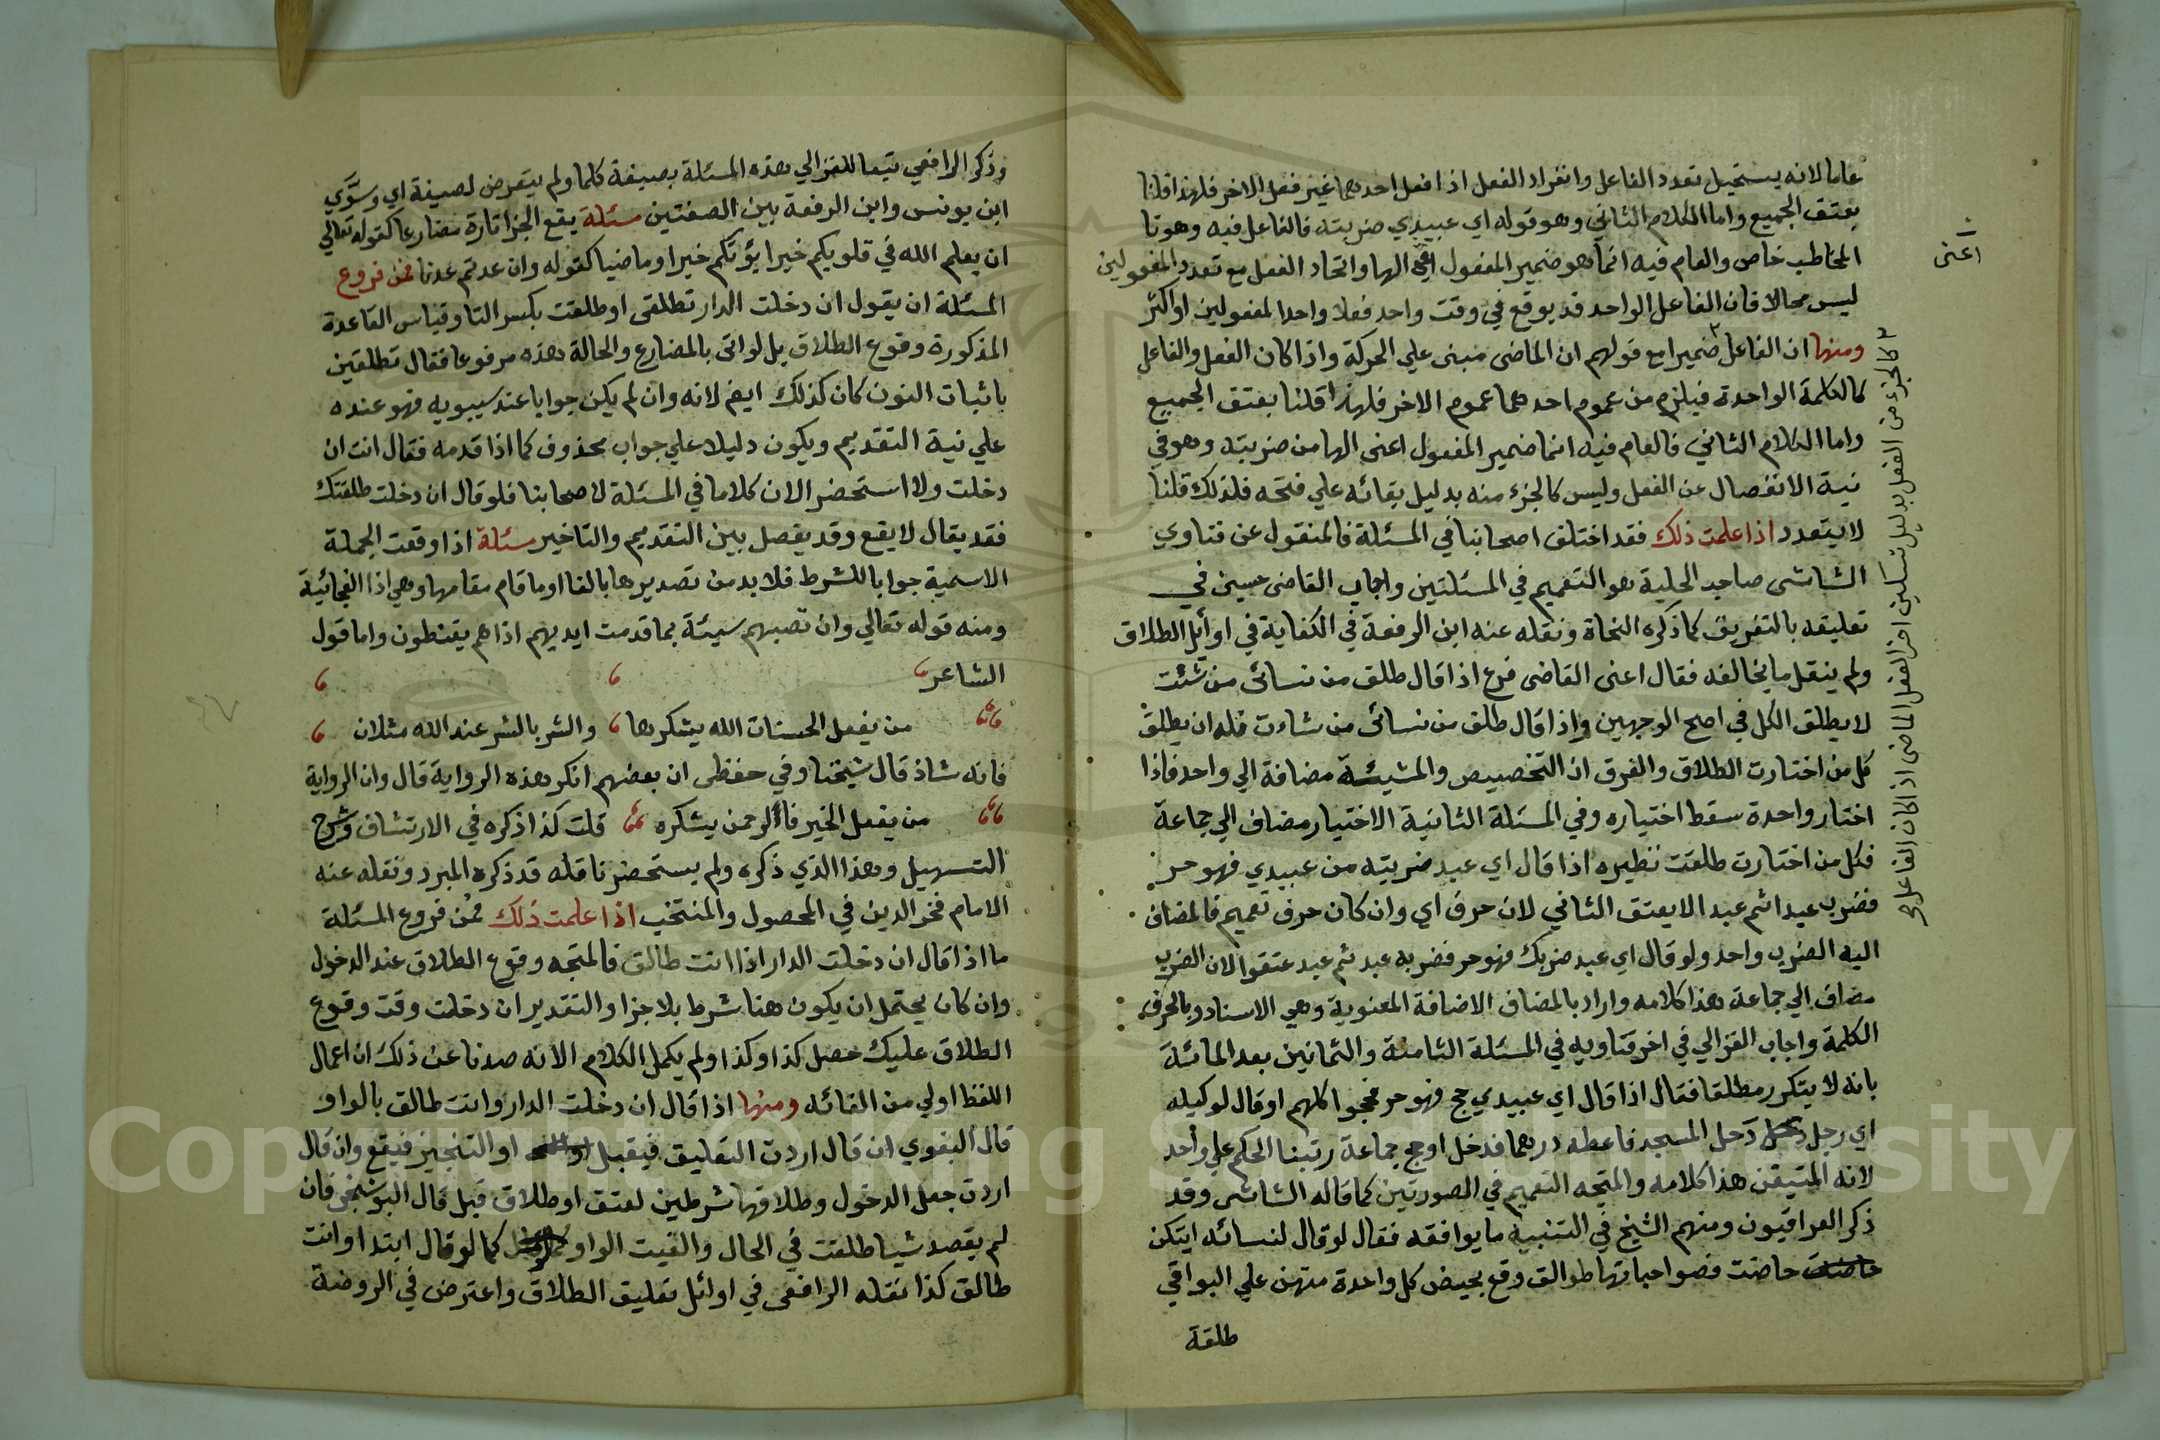 عاما لانه يستحيل تعدد الفاعل وانفراد الفعل اذا فعل احدهما غير فعل الاخر فلهذا قلنا
يعتق الجميع واما الكلام الثاني وهو قوله اي عبيدي ضربته فالفاعل فيه وهو تا
المخاطب خاص والعام فيه انما هو ضمير المفعول اعني الها واتحاد الفعل مع تعدد المفعولين
ليس محالا فان الفاعل الواحد قد يوقع في وقت واحد فعلا واحدا لمفعولين او اكثر
ومنها ان الفاعل ضميرا مع قولهم ان الماضى مبنى علي الحركة واذا كان الفعل والفاعل
كالكلمة الواحدة فيلزم من عموم احدهما عموم الاخر فلهذا قلنا بعتق الجميع
واما الكلام الثاني فالعام فيه انما ضمير المفعول اعنى الها من ضربته وهو في
نية الانفصال عن الفعل وليس كالجزء منه بدليل بقائه علي فتحه فلذلك قلنا
لا يتعدد اذا علمت ذلك فقد اختلف اصحابنا في المسئلة فالمنقول عن فتاوي
الشاشى صاحب الحلية هو التعميم في المسئلتين واجاب القاضى حسين في
تعليقه بالتفريق كما ذكره النحاة ونقله عنه ابن الرفعة في الكفاية في اوائل الطلاق
ولم ينقل ما يخالفه فقال اعنى القاضى فرع اذا قال طلق من نسائى من شئت
لا يطلق الكل في اصح الوجهين واذا قال طلق من نسائى من شاءت فله ان يطلق
كل من اختارت الطلاق والفرق ان التخصيص والمشيئة مضافة الي واحد فاذا
اختار واحدة سقط اختياره وفي المسئلة الثانية الاختيار مضاف الي جماعة
فكل من اختارت طلقت نظيره اذا قال اي عبد ضربته من عبيدي فهو حر
فضرب عبدا ثم عبدا لا يعتق الثاني لان حرف اي وان كان حرف تعميم فالمضاف
اليه الضرب واحد ولو قال اي عبد ضربك فهو حر فضربه عبد ثم عبد عتقوا لان الضرب
مضاف الي جماعة هذا كلامه واراد بالمضاف الاضافة المعنوية وهي الاسناد وبالحرف
الكلمة واجاب الغزالي في اخر فتاويه في المسئلة الثامنة والثمانين بعد المائة
بانه لا يتكرر مطلقا فقال اذا قال اي عبيدي حج فهو حر فحجوا كلهم او قال لوكيله
اي رجل دخل المسجد فاعطه درهما فدخل او حج جماعة رتبنا الحكم علي واحد
لانه المتيقن هذا كلامه والمتجه التعميم في الصورتين كما قاله الشاشى وقد
ذكر العراقيون ومنهم الشيخ في التنبيه ما يوافقه فقال لو قال لنسائه ايتكن
حاضت فصواحباتها طوالق وقع بحيض كل واحدة منهن علي البواقي
طلقة
اعنى
كالجزء من الفعل بدليل تسكين اخر الفعل الماضى اذا كان الفاعل
وذكر الرافعي تبعا للغزالي هذه المسئلة بصيغة كلما ولم يتعرض لصيغة اي وسوَّي
ابن يونس وابن الرفعة بين الصفتين مسئلة يقع الجزا تارة مضارعا كقوله تعالي
ان يعلم الله في قلوبكم خيرا يؤتكم خيرا وماضيا كقوله وان عدتم عدنا فمن فروع
المسئلة ان يقول ان دخلت الدار تطلقى او طلقت بكسر التا وقياس القاعدة
المذكورة وقوع الطلاق بل لو اتى بالمضارع والحالة هذه مرفوعا فقال تطلقين
باثبات النون كان كذلك ايضا لانه وان لم يكن جوابا عند سيبويه فهو عنده
علي نية التقديم ويكون دليلا علي جواب محذوف كما اذا قدمه فقال انت ان
دخلت ولا استحضر الان كلاما في المسئلة لاصحابنا فلو قال ان دخلت طلقتك
فقد يقال لا يقع وقد يفصل بين التقديم والتاخير مسئلة اذا وقعت الجملة
الاسمية جوابا للشرط فلا بد من تصديرها بالفا او ما قام مقامها وهي اذا الفجائية
ومنه قوله تعالي وان تصبهم سيئة بما قدمت ايديهم اذا هم يقنطون واما قول
الشاعر
من يفعل الحسنات الله يشكرها والشر بالشر عند الله مثلان
فانه شاذ قال شيخنا وفي حفظى ان بعضهم انكر هذه الرواية قال وان الرواية
من يفعل الخير فالرحمن يشكره قلت كذا ذكره في الارتشاف وشرح
التسهيل وهذا الذي ذكره ولم يستحضر ناقله قد ذكره المبرد ونقله عنه
الامام فخر الدين في المحصول والمنتخب اذا علمت ذلك فمن فروع المسئلة
ما اذا قال ان دخلت الدار اذا انت طالق فالمتجه وقوع الطلاق عند الدخول
وان كان يحتمل ان يكون هنا شرط بلا جزا والتقدير ان دخلت وقت وقوع
الطلاق عليك حصل كذا وكذا ولم يكمل الكلام الا انه صدنا عن ذلك ان اعمال
اللفظ اولي من الغائه ومنها اذا قال ان دخلت الدار وانت طالق بالواو
قال البغوي ان قال اردت التعليق فيقبل او التنجيز فيقع وان قال
اردت جعل الدخول وطلاقها شرطين لعتق او طلاق قبل قال البوشنجى فان
لم يقصد شيا طلقت في الحال والقيت الواو كما لو قال ابتدا وانت
طالق كذا نقله الرافعى في اوائل تعليق الطلاق واعترض في الروضة
Copyright © King Saud University